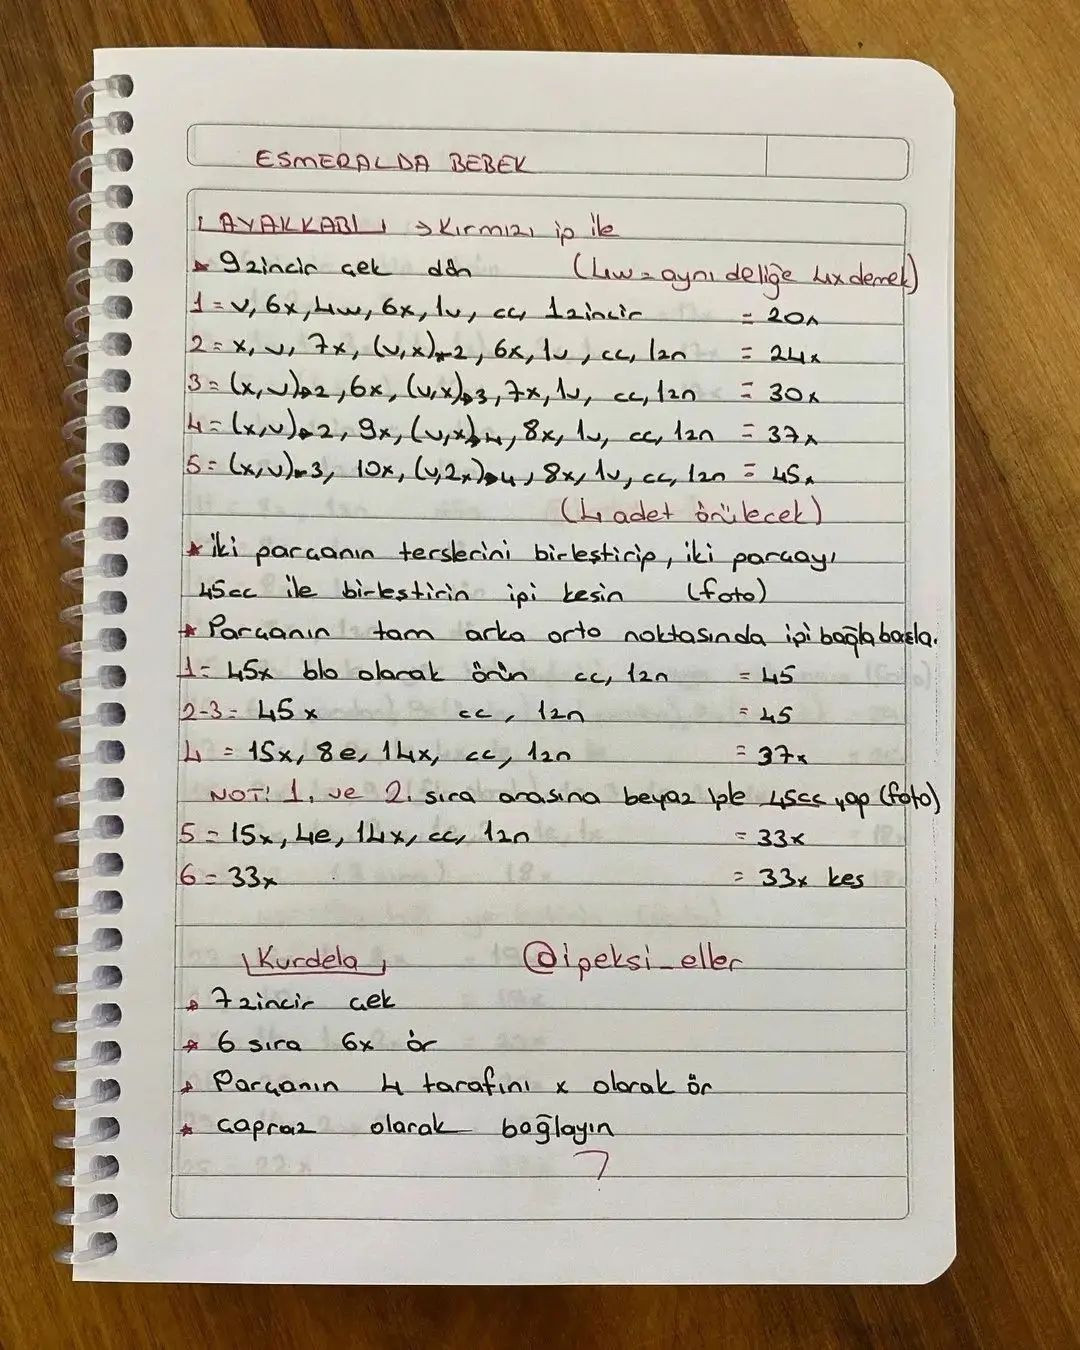 ESMERALDA BEBEK
AYAKKABI → Kırmızı ip ile
★ 9zincir çek dön (4w = aynı deliğe 4x demek)
1 = v, 6x, 4w, 6x, 1v, cc, 1zincir = 20x
2 = x, v, 7x, (v,x)*2, 6x, 1v, cc, 1zn = 24x
3 = (x,v)*2, 6x, (v,x)*3, 7x, 1v, cc, 1zn = 30x
4 = (x,v)*2, 9x, (v,x)*4, 8x, 1v, cc, 1zn = 37x
5 = (x,v)*3, 10x, (v,2x)*4, 8x, 1v, cc, 1zn = 45x
(4 adet örülecek)
★ iki parçanın terslerini birleştirip, iki parçayı
45cc ile birleştirin ipi kesin (foto)
★ Parçanın tam arka orta noktasında ipi bağla başla.
1 = 45x blo olarak örün cc, 1zn = 45
2-3 = 45x cc, 1zn = 45
4 = 15x, 8e, 14x, cc, 1zn = 37x
NOT! 1. ve 2. sıra arasına beyaz iple 45cc yap (foto)
5 = 15x, 4e, 14x, cc, 1zn = 33x
6 = 33x = 33x kes
Kurdela @ipeksi_eller
★ 7zincir çek
★ 6 sıra 6x ör
★ Parçanın 4 tarafını x olarak ör
★ çapraz olarak bağlayın